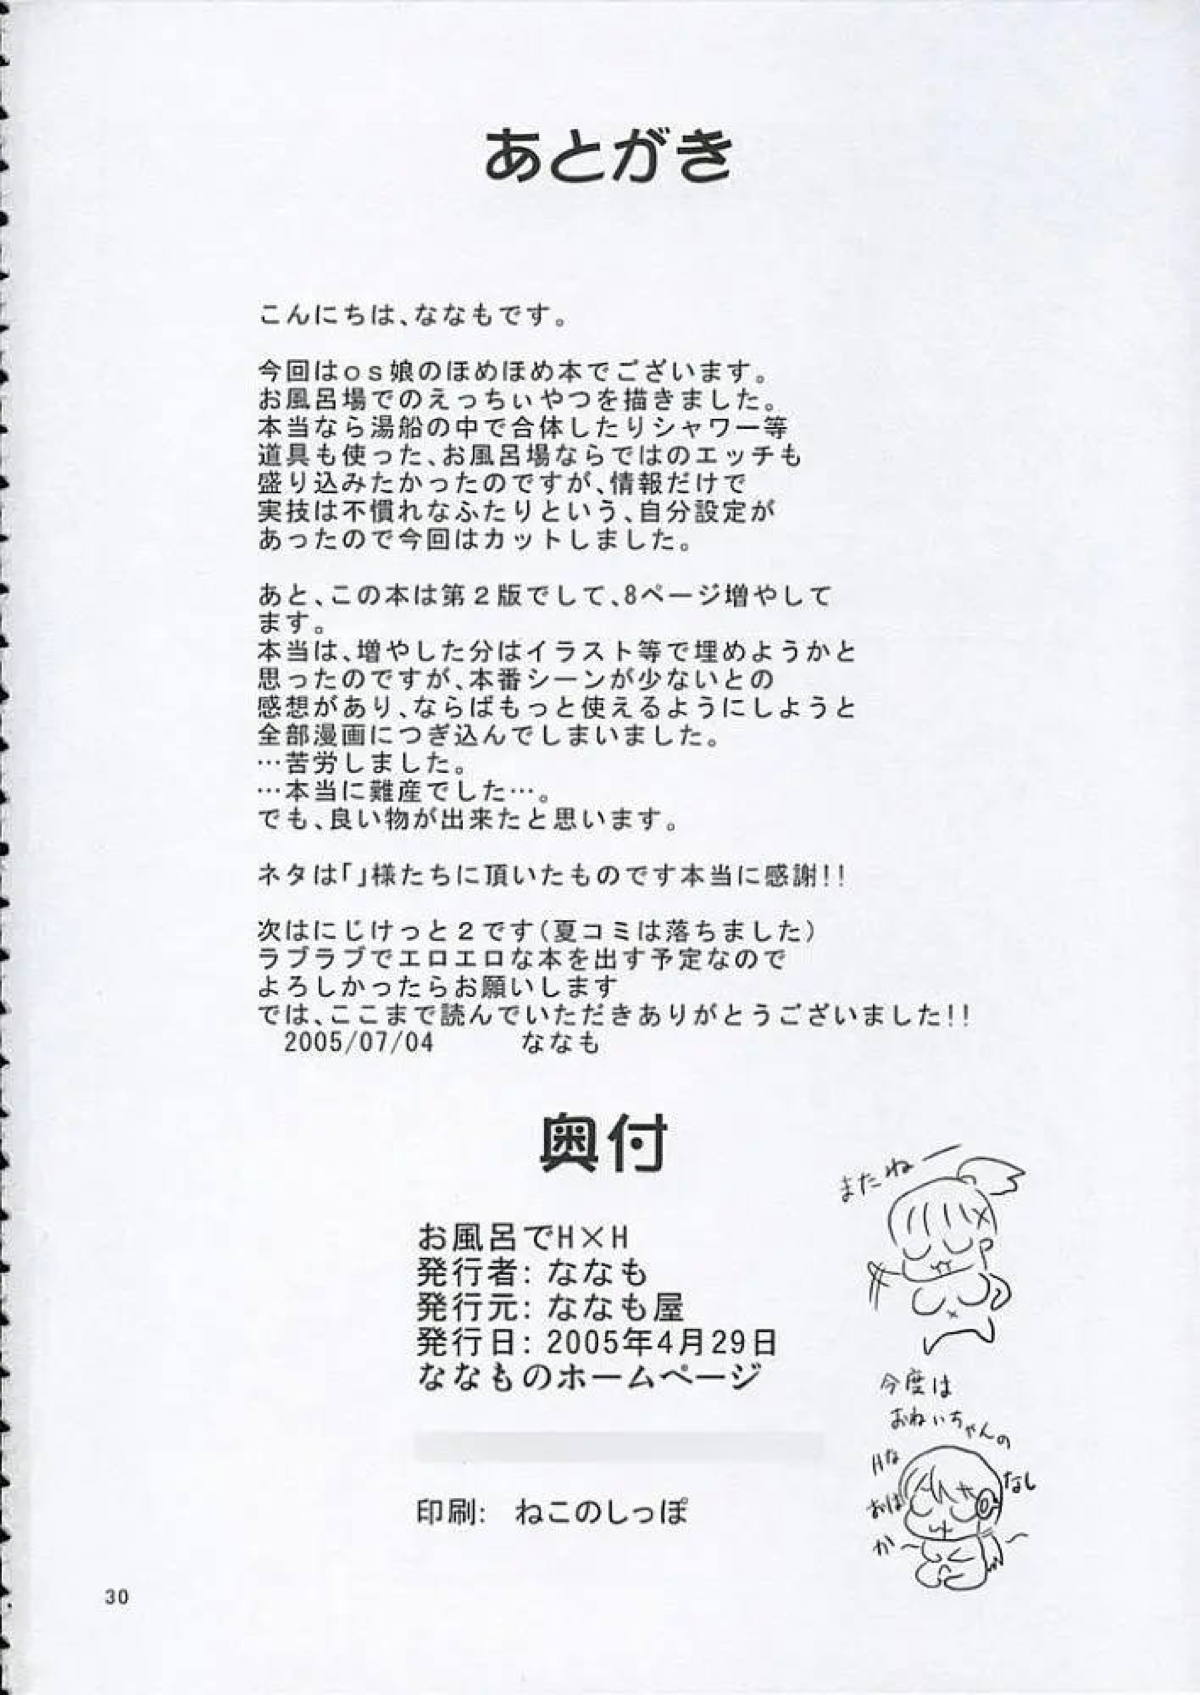 あとがき
こんにちは、ななもです。
今回はos娘のほめほめ本でございます。
お風呂場でのえっちぃやつを描きました。
本当なら湯船の中で合体したりシャワー等
道具も使った、お風呂場ならではのエッチも
盛り込みたかったのですが、情報だけで
実技は不慣れなふたりという、自分設定が
あったので今回はカットしました。
あと、この本は第２版でして、8ページ増やして
ます。
本当は、増やした分はイラスト等で埋めようかと
思ったのですが、本番シーンが少ないとの
感想があり、ならばもっと使えるようにしようと
全部漫画につぎ込んでしまいました。
…苦労しました。
…本当に難産でした…。
でも、良い物が出来たと思います。
ネタは「」様たちに頂いたものです本当に感謝!!
次はにじけっと２です(夏コミは落ちました)
ラブラブでエロエロな本を出す予定なので
よろしかったらお願いします
では、ここまで読んでいただきありがとうございました!!
2005/07/04 ななも
奥付
お風呂でH×H
発行者: ななも
発行元: ななも屋
発行日: 2005年4月29日
ななものホームページ
印刷: ねこのしっぽ
またねー
今度は
おねいちゃんの
Hな
おはなし
か～
30